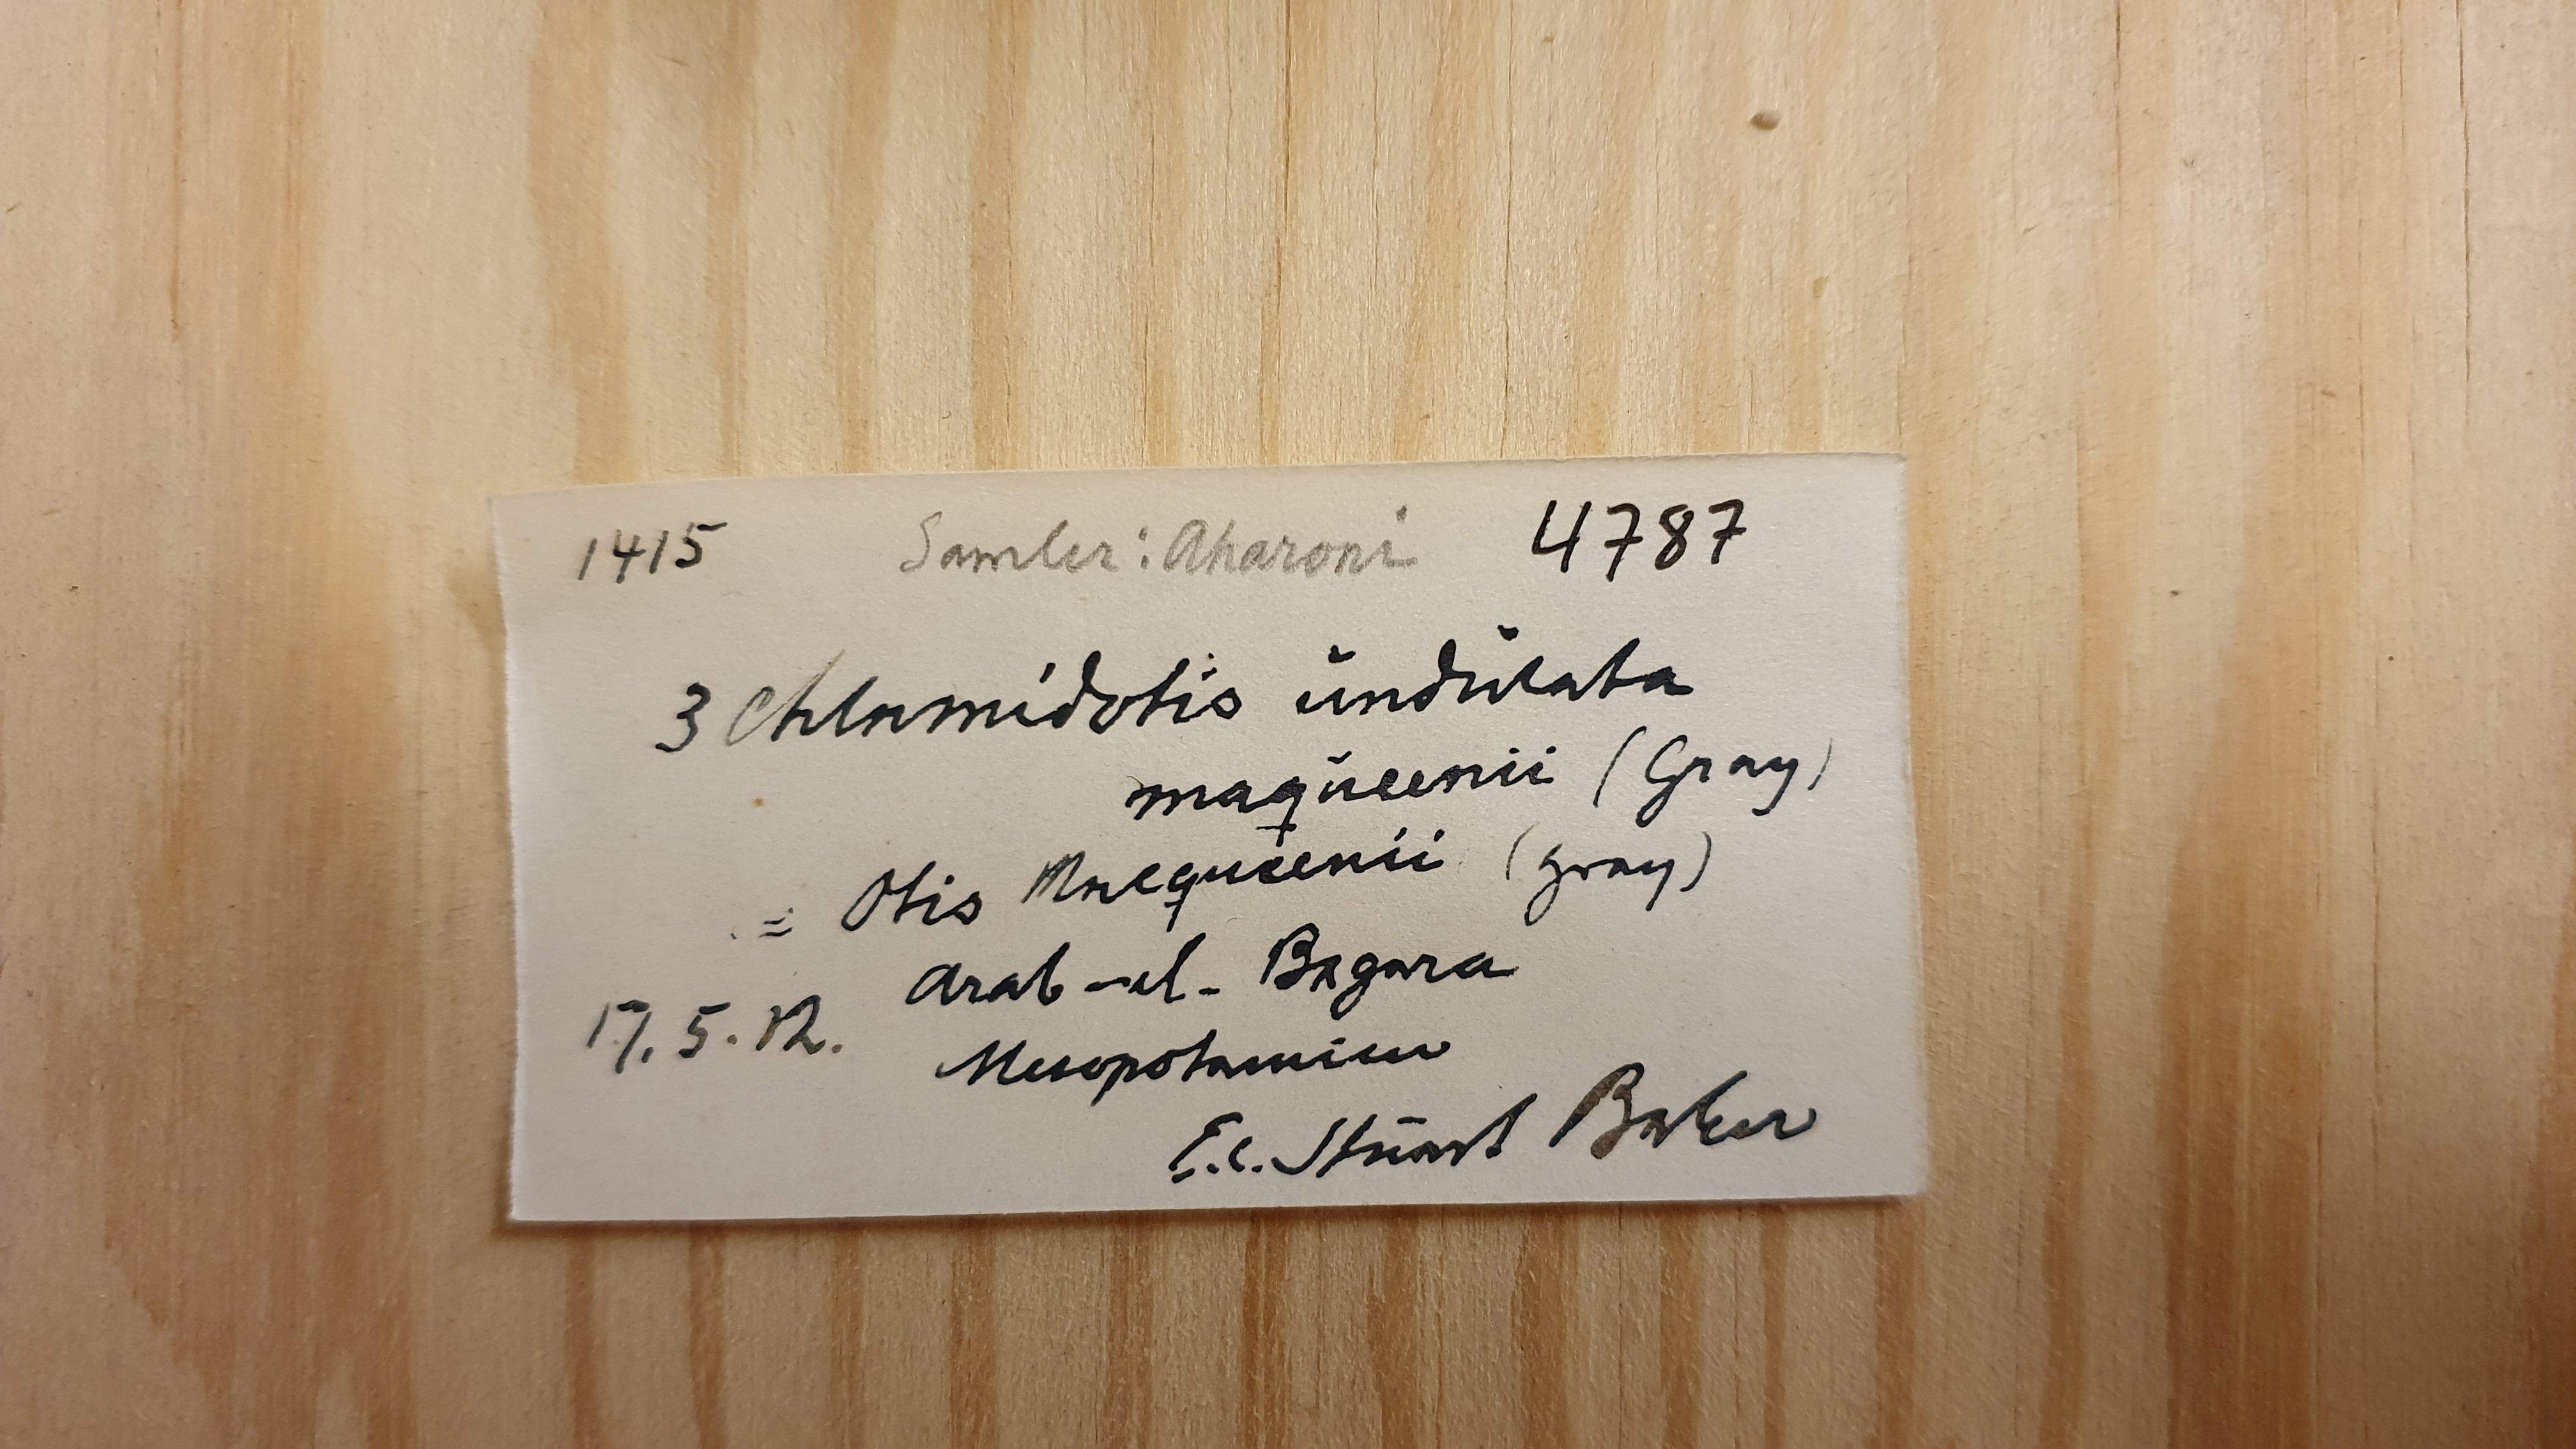 1415 Samler: Aharoni 4787
3 Chlamidotis undulata
maqueenii (Gray)
= Otis Macqueenii (Gray)
Arab-el-Bagara
17.5.12. Mesopotamien
E.C. Stuart Baker